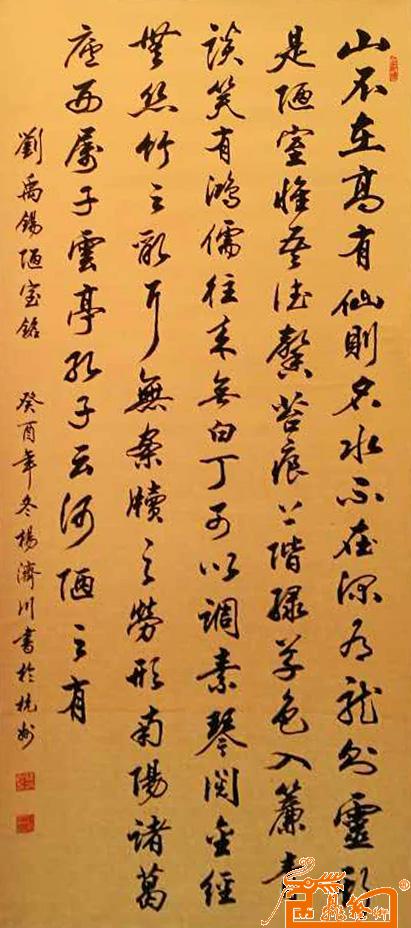 山不在高有仙則名水不在深有龍則靈斯
是陋室惟吾德馨苔痕上階綠草色入簾青
談笑有鴻儒往來無白丁可以調素琴閱金經
無絲竹之亂耳無案牘之勞形南陽諸葛
廬西蜀子雲亭孔子云何陋之有
劉禹錫陋室銘 癸酉年冬楊濟川書於杭州